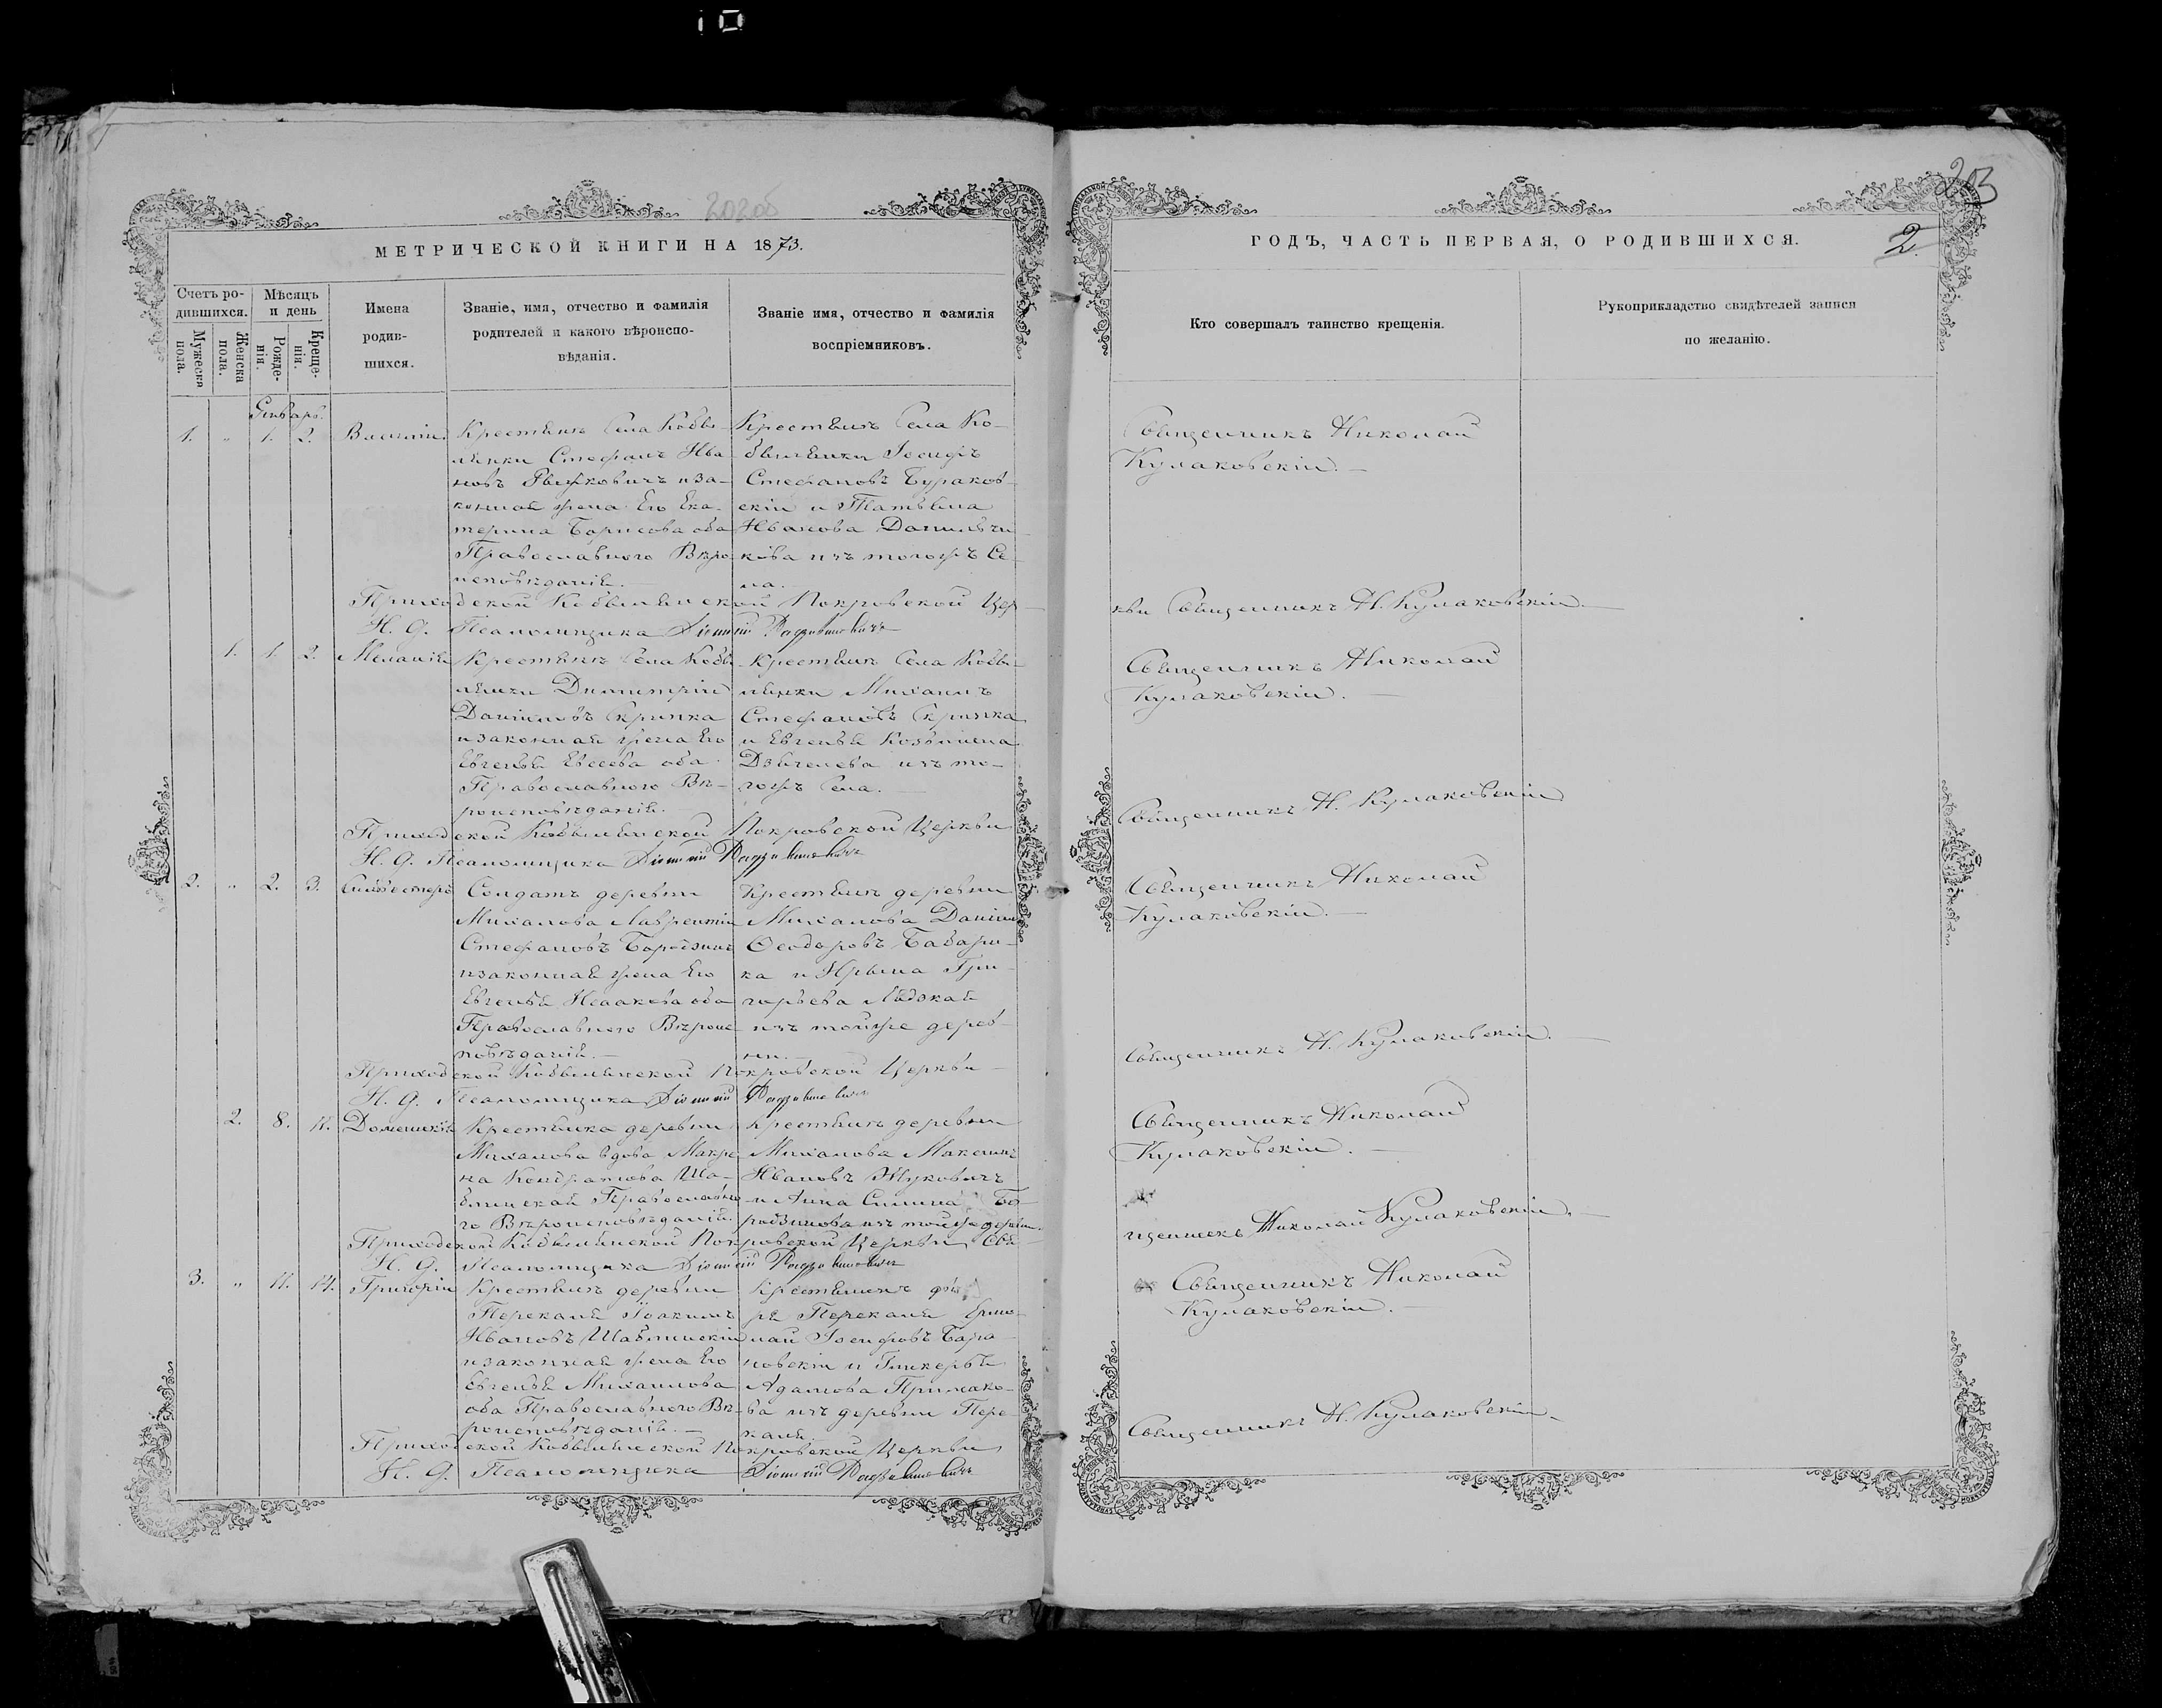 202об
203
МЕТРИЧЕСКОЙ КНИГИ НА 1873.
ГОДЪ, ЧАСТЬ ПЕРВАЯ, О РОДИВШИХСЯ.
2.
Счетъ ро-
дившихся.
Мужеска
пола.
Женска
пола.
Мѣсяцъ
и день
Рожде-
нія.
Креще-
нія.
Имена
родив-
шихся.
Званіе, имя, отчество и фамилія
родителей и какого вѣроиспо-
вѣданія.
Званіе имя, отчество и фамилія
воспріемниковъ.
Кто совершалъ таинство крещенія.
Рукоприкладство свидѣтелей записи
по желанію.
Январь.
1. " 1. 2.
Василій
Крестьянъ Села Кобы-
лянки Стефанъ Ива-
новъ и за-
конная жена Его Ека-
терина Борисова оба
Православнаго Вѣро-
исповѣданія.
Крестьянъ Села Ко-
былянки Іосифъ
Стефановъ Бураков-
скій и Татьяна
Иванова Данильчи-
кова изъ тогожъ Се-
ла.
Священникъ Николай
Кулаковскій.
Приходской Кобылянской Покровской Цер-
кви Священникъ Н. Кулаковскій.
И. д. Псаломщика
1. 1. 2.
Меланія
Крестьянъ Села Кобы-
лянки Димитрій
Даніиловъ Скрипка
и законная жена Его
Евгенія Евсеева оба
Православнаго Вѣ-
роисповѣданія.
Крестьянъ Села Кобы-
лянки Михаилъ
Стефановъ Скрипка
и Евгенія Козьмина
изъ то-
гожъ Села.
Священникъ Николай
Кулаковскій.
Приходской Кобылянской Покровской Церкви
Священникъ Н. Кулаковскій
И. д. Псаломщика
2. " 2. 3.
Сильвестръ
Солдатъ деревни
Михалова Лаврентій
Стефановъ
и законная жена Его
Евгенія Исаакова оба
Православнаго Вѣроис-
повѣданія.
Крестьянъ деревни
Михалова Даніилъ
Ѳеодоровъ Бабари-
ка и Ирына Гри-
горьева
изъ тойже дерев-
ни.
Священникъ Николай
Кулаковскій.
Приходской Кобылянской Покровской Церкви
Священникъ Н. Кулаковскій.
И. д. Псаломщика
2. 8.
Домникія
Крестьянка деревни
Михалова вдова Макри-
на Кондратова Ша-
блинская Православна-
го Вѣроисповѣданія.
Крестьянъ деревни
Михалова Максимъ
Ивановъ Жуковичъ
и Анна Силина Бо-
родзинова изъ тойже деревни.
Священникъ Николай
Кулаковскій.
Приходской Кобылянской Покровской Церкви Свя-
щенникъ Николай Кулаковскій.
И. д. Псаломщика
3. " 11. 14.
Григорій
Крестьянъ деревни
Перекалѣ Іоакимъ
Ивановъ Шаблинскій
и законная жена Его
Евгенія Михаилова
оба Православнаго Вѣ-
роисповѣданія.
Крестьянинъ
Перекалѣ
Іосифовъ Бара-
новскій и Гликерія
Адамова
изъ деревни Пере-
калѣ.
Священникъ Николай
Кулаковскій.
Приходской Кобылянской Покровской Церкви
Священникъ Н. Кулаковскій.
И. д. Псаломщика